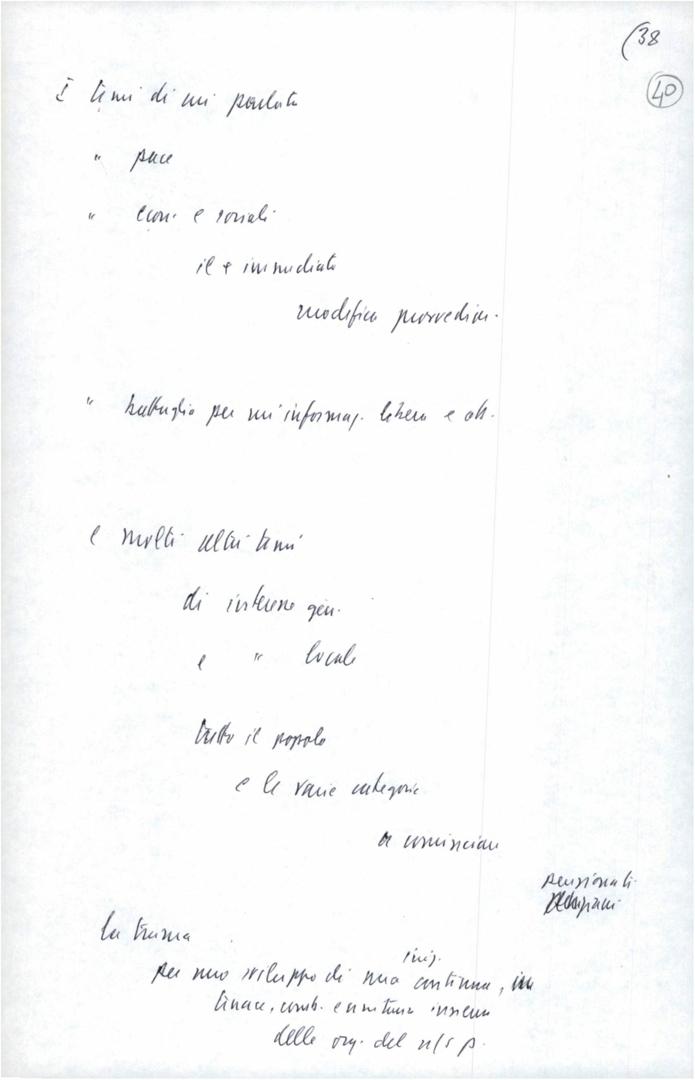 (38
40
I temi di cui parlato
" pace
" econ. e sociali
il + immediato
modifica provvedim.
" battaglia per un'informaz. libera e ob.
e molti altri temi
di interesse gen.
e " locale
tutto il popolo
e le varie categorie
a cominciare
pensionati
la trama
iniz.
per uno sviluppo di una continua,
tenace, comb. e unitaria insieme
delle org. del n/s p.